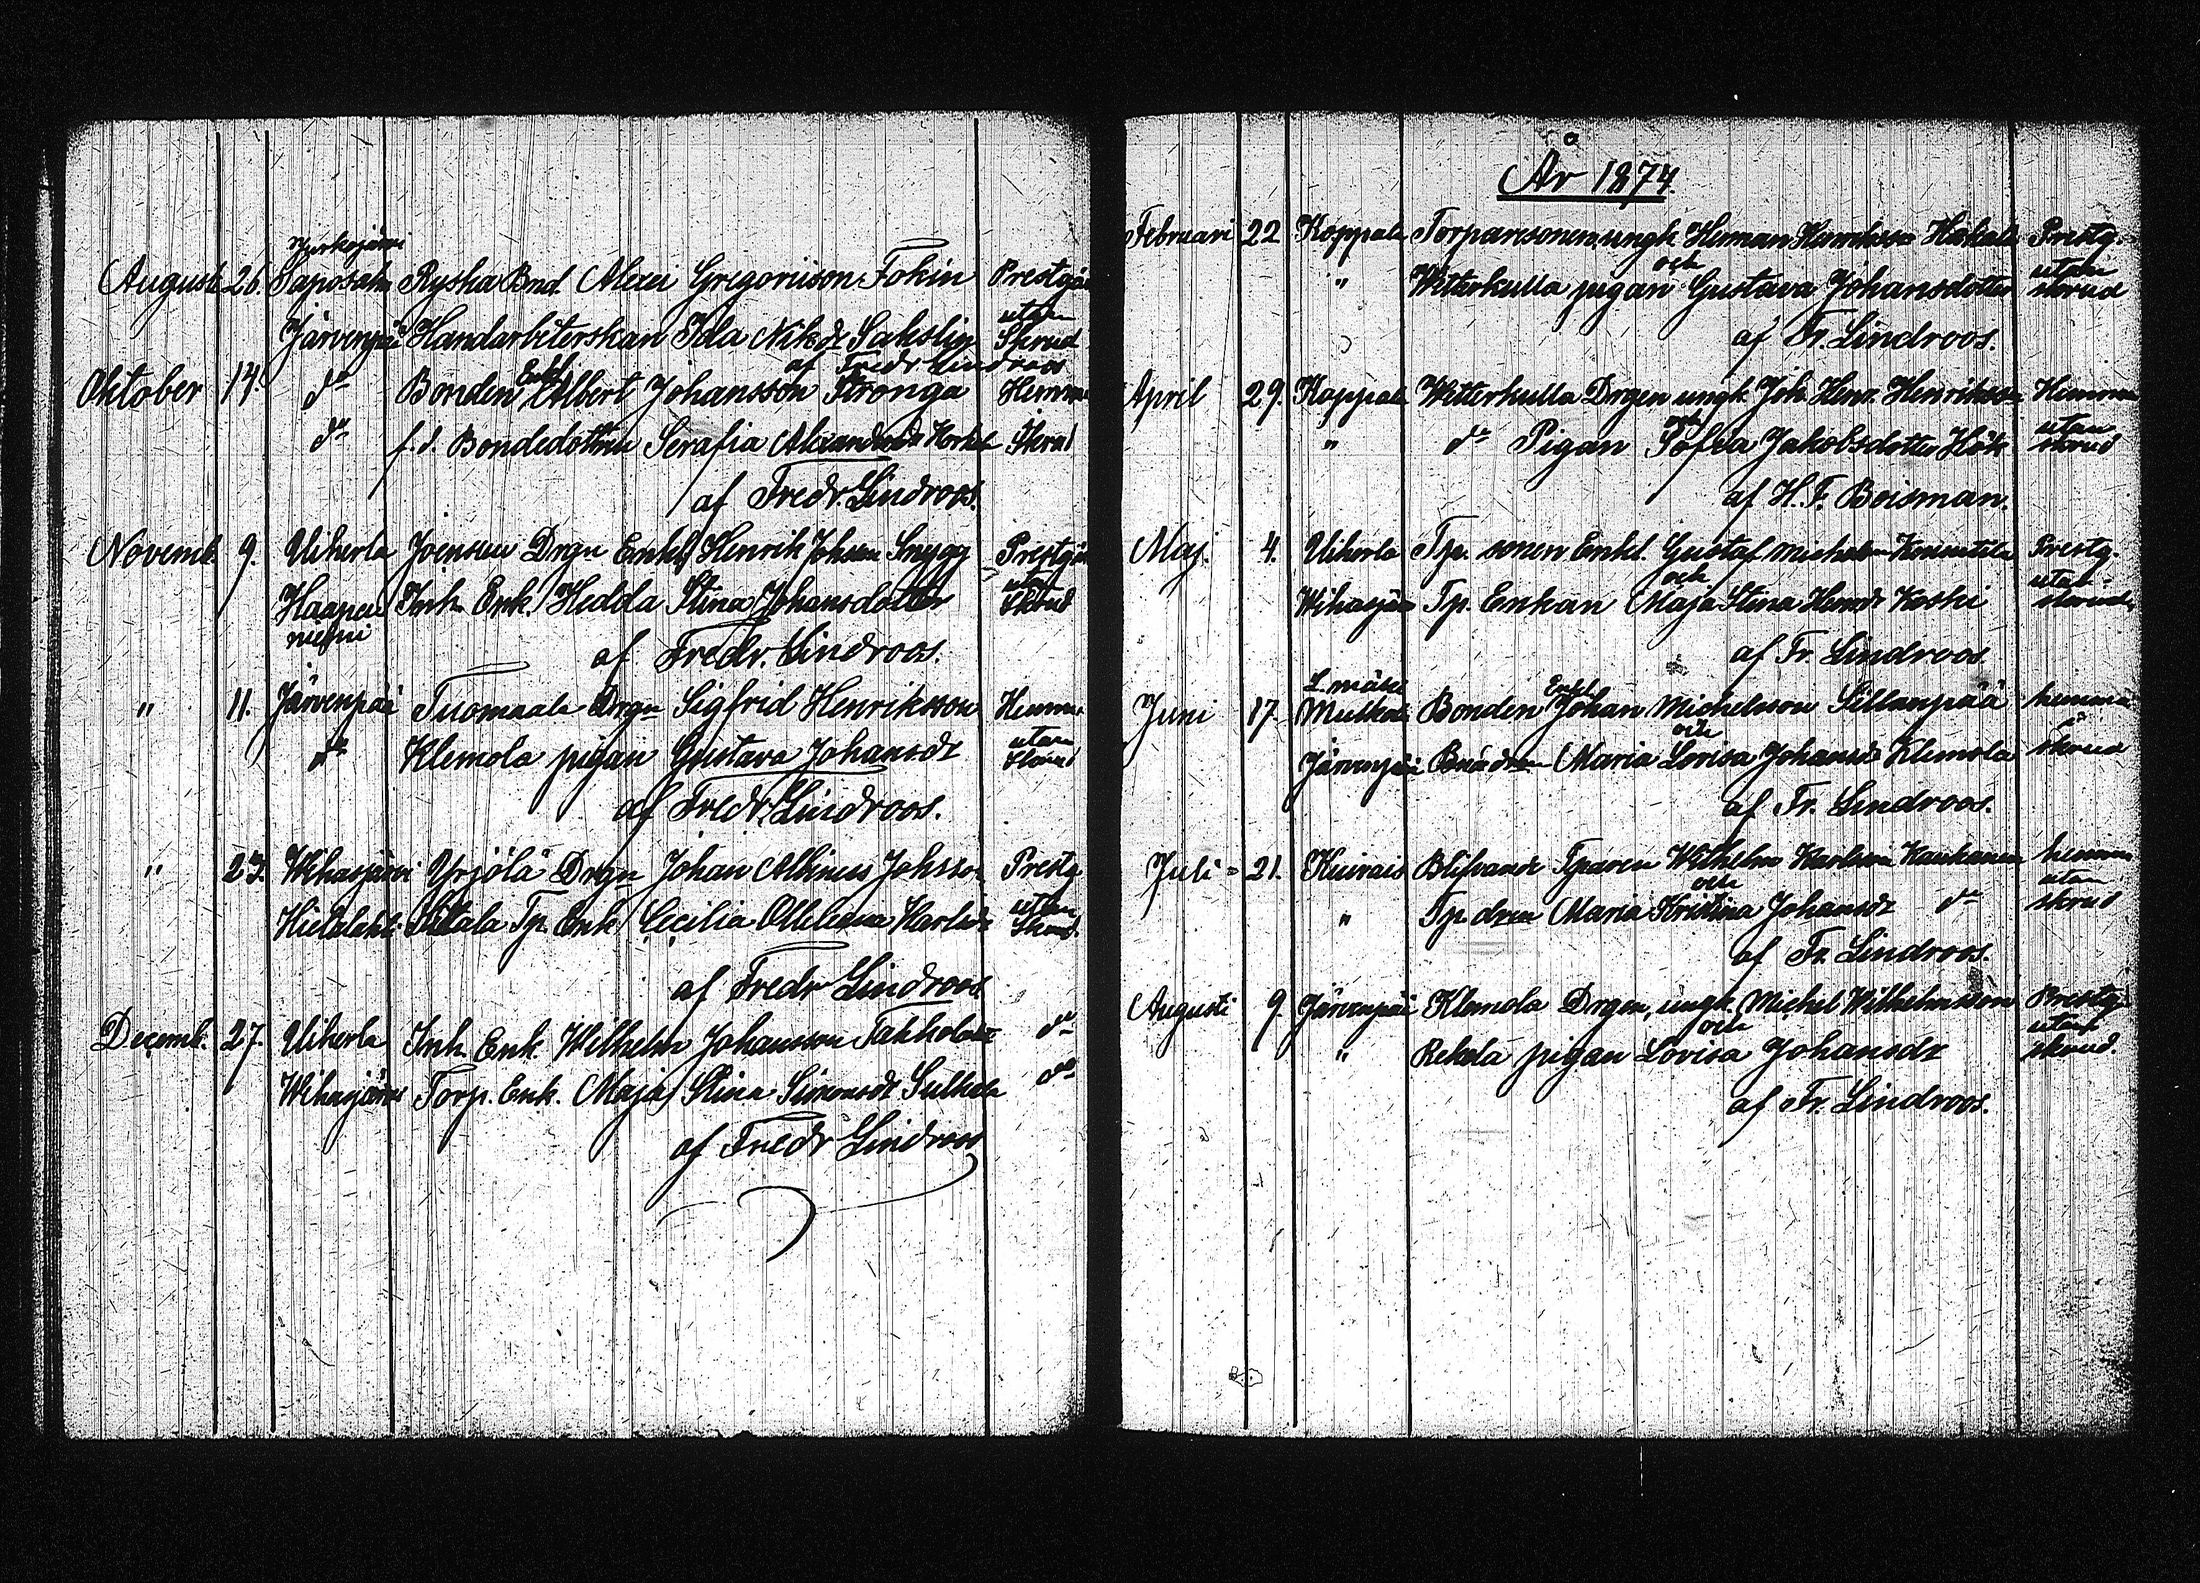 Jurkojärvi
August 26. Taposaho Ryska Bnd. Alexei Gregoriison Fokin Prestgår
utan
Järvenpää Handarbeterskan Ida Nilsdr Sakslin Skrud
af Fredr Lindroos
Enkl.
Oktober 14. do Bonden Albert Johansson Stronga Hemma
do f.d. Bondedottern Serafia Skrud
af Fredr. Lindroos.
Novemb. 9. Uiherla Joensuu Drgn Enkl. Henrik Johsson Snygg Prestgår
utan
Haapa Inh. Enk. Hedda Stina Johansdotter Skrud
niemi
af Fredr. Lindroos.
" 11. Järvenpää Tuomaala Drgn Sigfrid Henriksson Hemma
utan
do Klemola pigan Gustava Johansdr Skrud
af Fredr. Lindroos.
" 23. Wihasjärvi Yrjölä Drgn Johan Albinus Johsson Prestg
utan
Hietalahti Tp. Enk. Cecilia Karlsdr Skrud.
af Fredr Lindroos.
Decemb. 27. Uiherla Inh. Enk. Wilhelm Johansson do
Wihasjärvi Torp. Enk. Maja Stina Simonsdr Sulkala do
af Fredr Lindroos
År 1874.
Februari 22 Koppala Torparesonen, ungk. Herman Henriksson Hakala Prestg.
och utan
" Witterkulla pigan Gustava Johansdotter skrud
af Fr. Lindroos.
April 29. Koppala Witterkulla Drgen ungk. Joh. Henr. Henriksson Hemma
och utan
" do Pigan Sofia Jakobsdotter Hök skrud
af H. F. Boisman.
Maj. 4. Uiherla Tp. sonen Enkl. Gustaf Michelsson Prestg.
och utan
Wihasjärvi Tp. Enkan Maja Stina Henrsdr Koski skrud.
af Fr. Lindroos.
Enkl.
Juni 17 Bonden Johan Michelsson Sillanpää hemma
och
Järvenpää Maria Lovisa Johansdr Klemola skrud
af Fr. Lindroos.
Juli 21. Kuivais Blifvande Tparen Wilhelm Karlsson hemma
och utan
" Tp. dren Maria Kristina Johansdr do skrud
af Fr. Lindroos.
Augusti 9. Järvenpää Klemola Drgen, ungk. Michel Wilhelmsson Prestg
och utan
" Rekola pigan Lovisa Johansdr skrud.
af Fr. Lindroos.